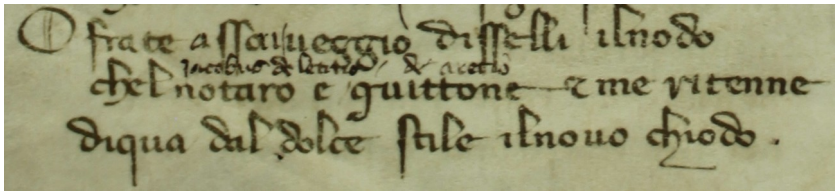 O frate assai ueggio disselli ilnodo
jacobus de lentino de arecio
chel notaro e guittone e me ritenne
diqua dal dolce stile ilnouo chiodo .